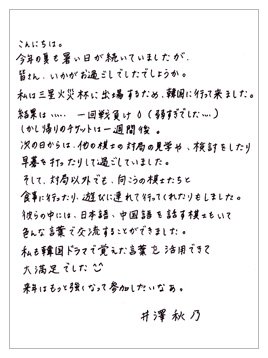 こんにちは。
今年の夏も暑い日が続いていましたが、
皆さん、いかがお過ごしでしたでしょうか。
私は三星火災杯に出場するため、韓国に行って来ました。
結果は..... 一回戦負け 0 (弱すぎでした...)
しかし帰りのチケットは一週間後。
次の日からは、他の棋士の対局の見学や、検討をしたり
早碁を打ったりして過ごしていました。
そして、対局以外でも、向こうの棋士たちと
食事に行ったり、遊びに連れて行ってくれたりもしました。
彼らの中には、日本語、中国語を話す棋士もいて
色んな言葉で交流することができました。
私も韓国ドラマで覚えた言葉を活用できて
大満足でした
来年はもっと強くなって参加したいなぁ。
井澤秋乃